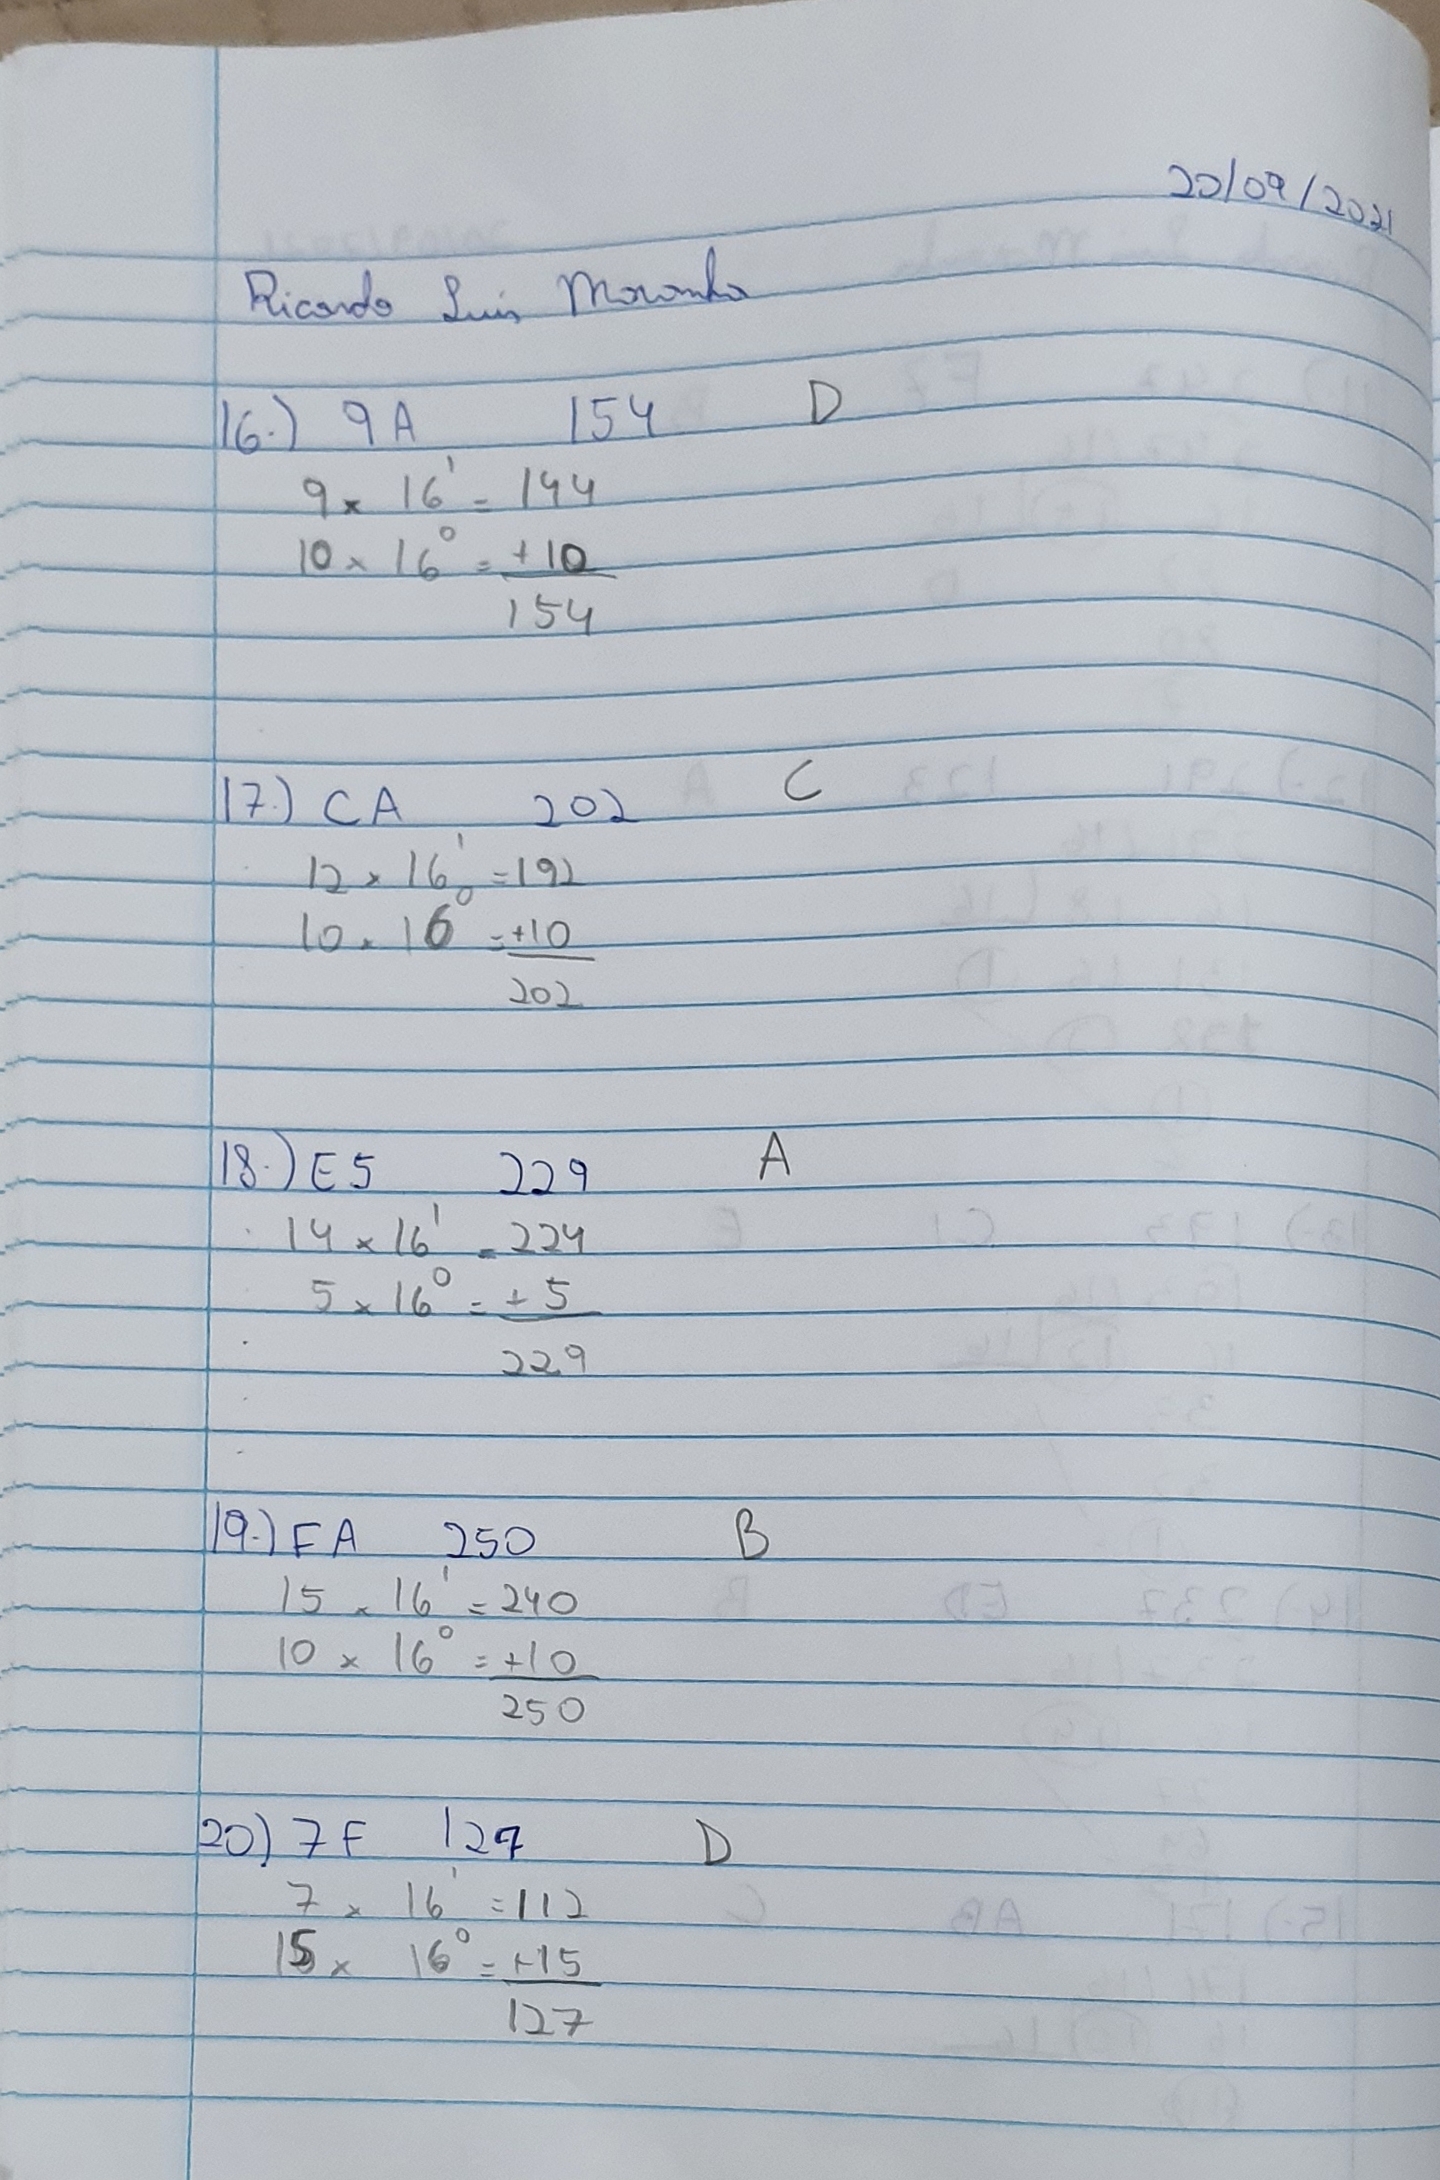 20/09/2021
Ricardo Luis
16.) 9A 154 D
9 x 16¹ = 144
10 x 16⁰ = +10
154
17.) CA 202 C
12 x 16¹ = 192
10 x 16⁰ = +10
202
18.) E5 229 A
14 x 16¹ = 224
5 x 16⁰ = + 5
229
19.) FA 250 B
15 x 16¹ = 240
10 x 16⁰ = +10
250
20) 7F 127 D
7 x 16¹ = 112
15 x 16⁰ = +15
127